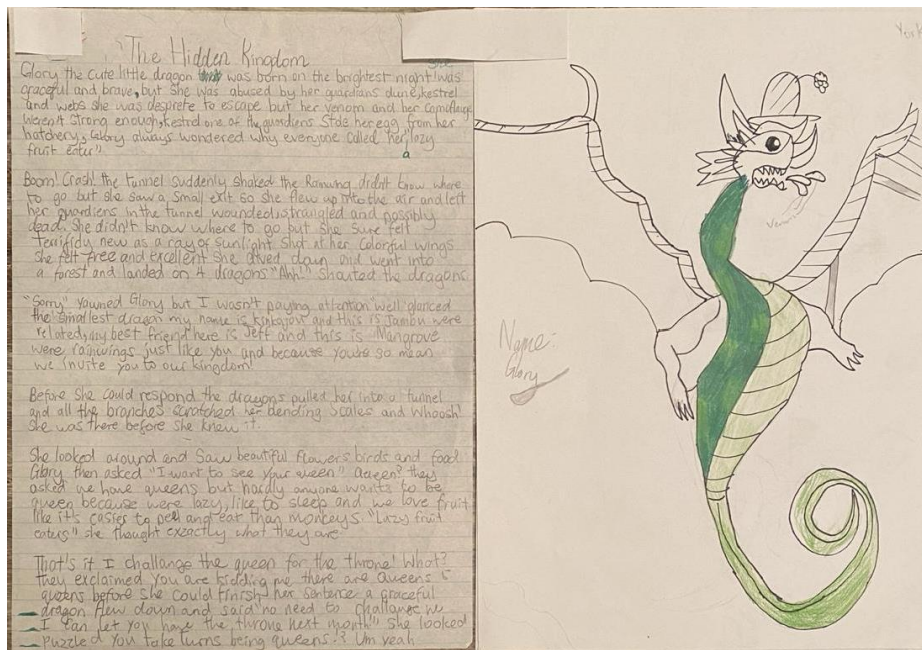 The Hidden Kingdom
She
Glory the cute little dragon was born on the brightest night! was
graceful and brave, but she was abused by her guardians dune, kestrel
and webs she was desprete to escape but her venom and her camoflauge
weren't strong enough, kestrel one of the guardiens Stole her egg from her
hatchery, Glory always wondered why everyone called her, "lazy
fruit eater"
a
Boom! Crash! the tunnel suddenly shaked the Rainwing didn't know where
to go but she saw a small exit so she flew up into the air and left
her guardiens in the tunnel wounded, strangled and possibly
dead. She didn't know where to go but she sure felt
terrifidy new as a ray of sunlight shot at her colorful wings
she felt free and excellent she dived down and went into
a forest and landed on 4 dragons "Ahh!" Shouted the dragons
"Sorry" youned Glory but I wasn't paying attention" well glanced
the smallest dragon my name is kinkajou and this is Jambu were
related, my best friend here is Jeff and this is Mangrove
were rainwings just like you and because youre so mean
we invite you to our kingdom!
Before she could respond the dragons pulled her into a tunnel
and all the branches scratched her bending scales and whoosh!
She was there before she knew it.
She looked around and Saw beautiful flowers birds and food
Glory then asked "I want to see your queen" Queen? they
asked we have queens but hardly anyone wants to be
queen because were lazy, like to sleep and we love fruit
like it's easier to peel and eat than monkeys. "Lazy fruit
eaters" she thought exzactly what they are
That's it I challange the queen for the throne! What?
they exclaimed You are kidding me there are Queens &
queens before she could finish her sentence a graceful
dragon flew down and said "no need to challange me
I can let you have the throne next month" She looked
puzzled You take turns being queens!? Um yeah
York
Venom
Name:
Glory